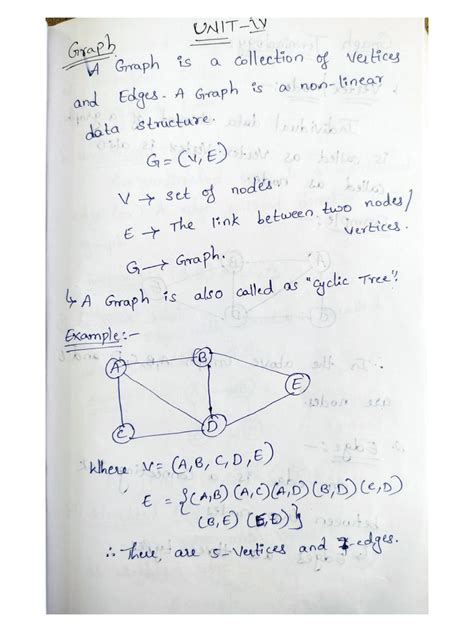 UNIT-IV
Graph
A Graph is a collection of Vertices
and Edges. A Graph is a non-linear
data structure.
G=(V,E)
V → set of nodes
E → The link between two nodes/
vertices.
G → Graph.
↳ A Graph is also called as "cyclic Tree".
Example:-
A
B
E
C
D
Where V=(A,B,C,D,E)
E = {(A,B)(A,C)(A,D)(B,D)(C,D)
(B,E)(E,D)}
∴ There are 5-Vertices and 7-edges.